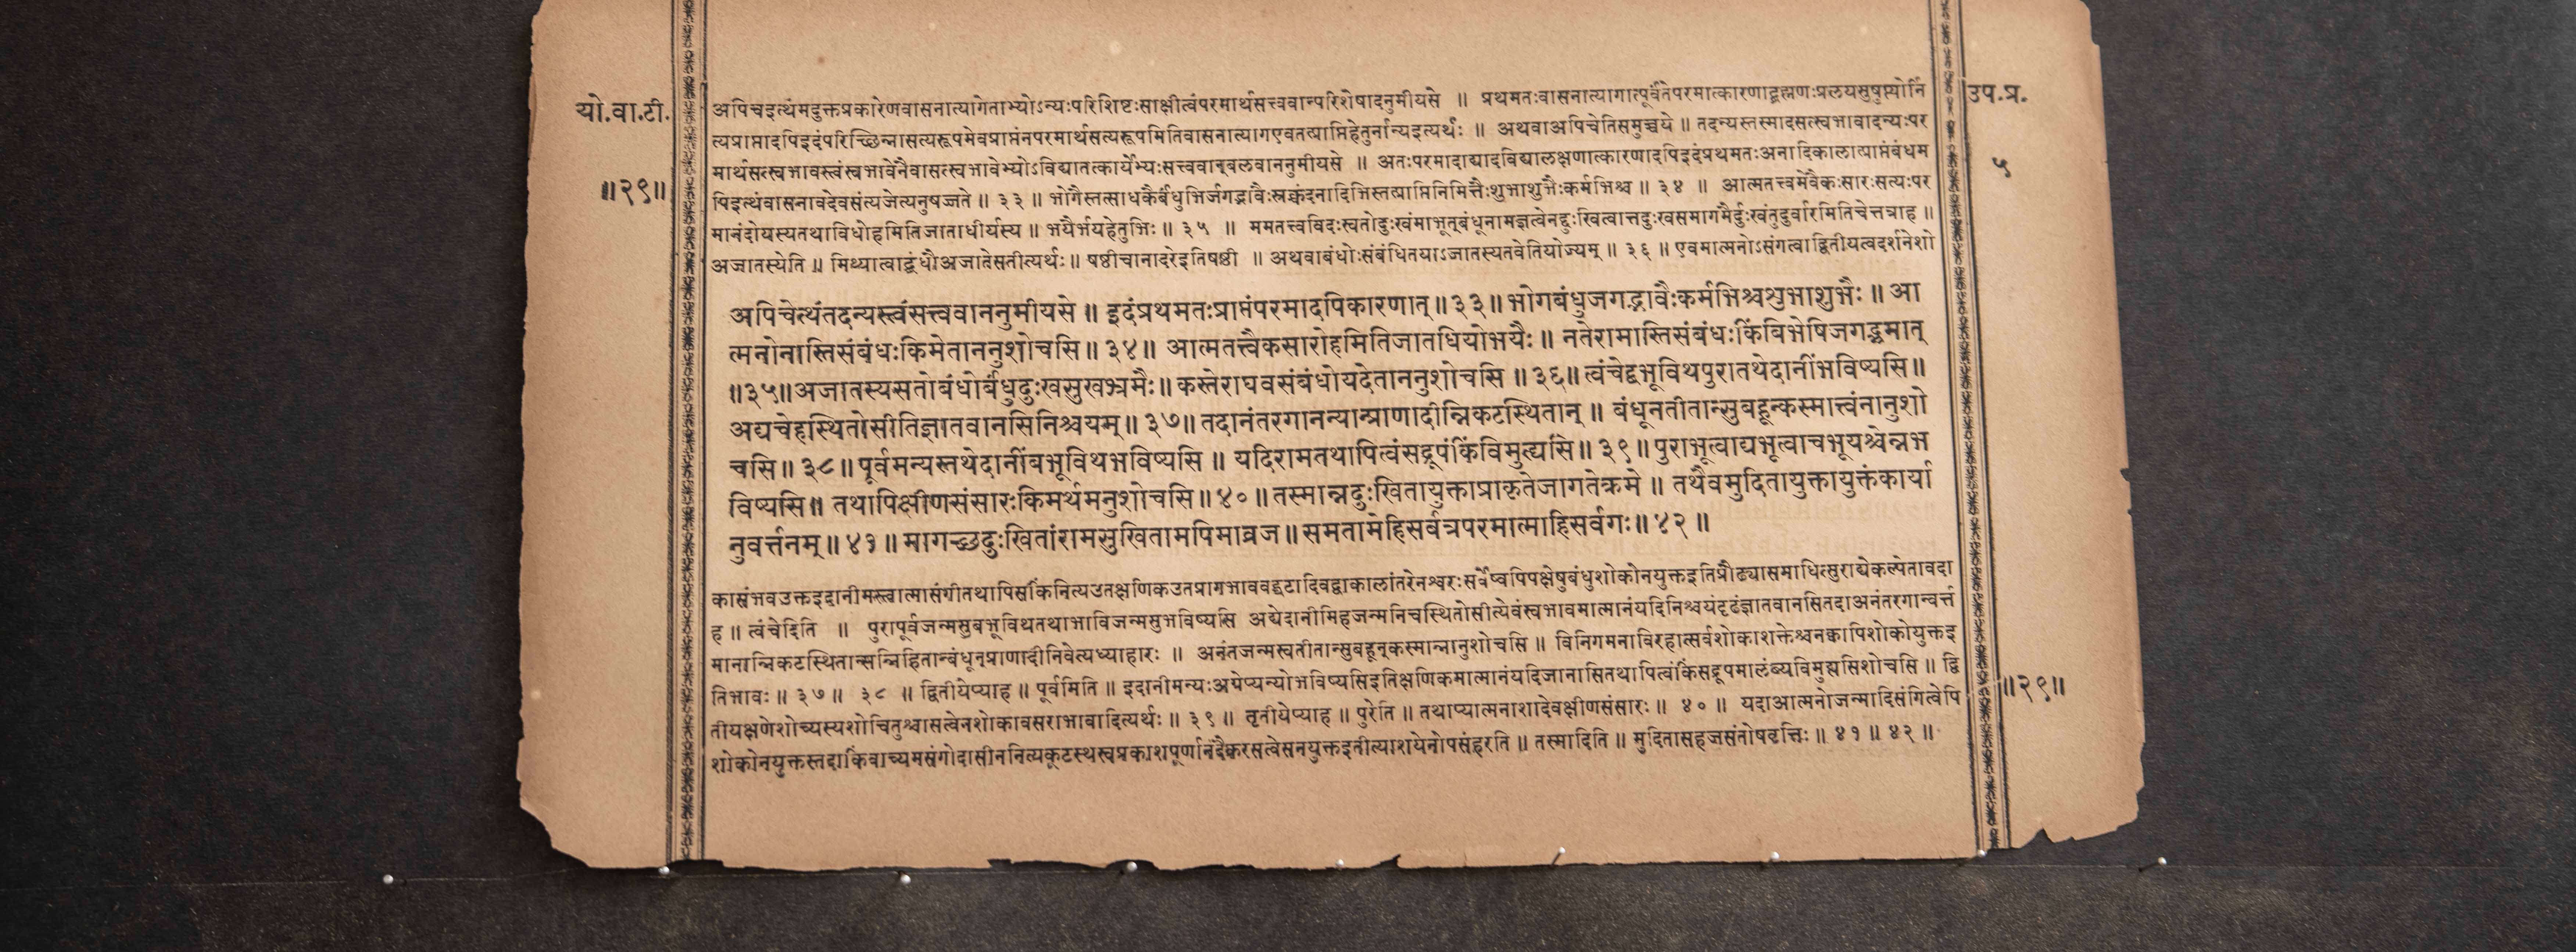 यो.वा.टी.
॥२९॥
अपिचइत्थंमदुक्तप्रकारेणवासनात्यागेताभ्योऽन्यःपरिशिष्टःसाक्षीत्वंपरमार्थसत्त्ववान्परिशेषादनुमीयसे ॥ प्रथमतःवासनात्यागात्पूर्वंतेपरमात्कारणाद्ब्रह्मणःप्रलयसुषुप्त्योर्नि
त्यप्राप्तादपिइदंपरिच्छिन्नासत्यरूपमेवप्राप्तंनपरमार्थसत्यरूपमितिवासनात्यागएवतत्प्राप्तिहेतुर्नान्यइत्यर्थः ॥ अथवाअपिचेतिसमुच्चये ॥ तदन्यस्तस्मादसत्स्वभावादन्यःपर
मार्थसत्स्वभावस्त्वंस्वभावेनैवासत्स्वभावेभ्योऽविद्यातत्कार्येभ्यःसत्त्ववान्बलवाननुमीयसे ॥ अतःपरमादाद्यादविद्यालक्षणात्कारणादपिइदंप्रथमतःअनादिकालात्प्राप्तंबंधम
पिइत्थंवासनावदेवसंत्यजेत्यनुषज्जते ॥ ३३ ॥ भोगैस्तत्साधकैर्बंधुभिर्जगद्भावैःस्रक्चंदनादिभिस्तत्प्राप्तिनिमित्तैःशुभाशुभैःकर्मभिश्च ॥ ३४ ॥ आत्मतत्त्वमेवैकःसारःसत्यःपर
मानंदोयस्यतथाविधोहमितिजाताधीर्यस्य ॥ भयैर्भयहेतुभिः ॥ ३५ ॥ ममतत्त्वविदःस्वतोदुःखंमाभूत्बंधूनामज्ञत्वेनदुःखित्वात्तदुःखसमागमैर्दुःखंतुदुर्वारमितिचेत्तत्राह ॥
अजातस्येति ॥ मिथ्यात्वाद्बंधौअजातेसतीत्यर्थः ॥ षष्ठीचानादरेइतिषष्ठी ॥ अथवाबंधोःसंबंधितयाऽजातस्यतवेतियोज्यम् ॥ ३६ ॥ एवमात्मनोऽसंगत्वाद्वितीयत्वदर्शनेशो
अपिचेत्थंतदन्यस्त्वंसत्त्ववाननुमीयसे ॥ इदंप्रथमतःप्राप्तंपरमादपिकारणात् ॥ ३३ ॥ भोगबंधुजगद्भावैःकर्मभिश्चशुभाशुभैः ॥ आ
त्मनोनास्तिसंबंधःकिमेताननुशोचसि ॥ ३४ ॥ आत्मतत्त्वैकसारोहमितिजातधियोभयैः ॥ नतेरामास्तिसंबंधःकिंबिभेषिजगद्भ्रमात्
॥३५॥अजातस्यसतोबंधोर्बंधुदुःखसुखभ्रमैः॥ कस्तेराघवसंबंधोयदेताननुशोचसि ॥३६॥ त्वंचेद्बभूविथपुरातथेदानींभविष्यसि॥
अद्यचेहस्थितोसीतिज्ञातवानसिनिश्चयम् ॥ ३७॥ तदानंतरगानन्यान्प्राणादीन्निकटस्थितान् ॥ बंधूनतीतान्सुबहून्कस्मात्त्वंनानुशो
चसि॥ ३८॥ पूर्वमन्यस्तथेदानींबभूविथभविष्यसि ॥ यदिरामतथापित्वंसद्रूपंकिंविमुह्यसि॥ ३९॥ पुराभूत्वाद्यभूत्वाचभूयश्चेन्नभ
विष्यसि॥ तथापिक्षीणसंसारःकिमर्थमनुशोचसि ॥ ४० ॥ तस्मान्नदुःखितायुक्ताप्राकृतेजागतेक्रमे ॥ तथैवमुदितायुक्तायुक्तंकार्या
नुवर्त्तनम् ॥ ४१ ॥ मागच्छदुःखितांरामसुखितामपिमाव्रज ॥ समतामेहिसर्वत्रपरमात्माहिसर्वगः॥ ४२ ॥
कासंभवउक्तइदानीमस्त्वात्मासंगीतथापिसकिंनित्यउतक्षणिकउतप्रागभाववद्घटादिवद्वाकालांतरेनश्वरःसर्वेष्वपिपक्षेषुबंधुशोकोनयुक्तइतिप्रौढ्यासमाधित्सुराद्येकल्पेतावदा
ह ॥ त्वंचेदिति ॥ पुरापूर्वजन्मसुबभूविथतथाभाविजन्मसुभविष्यसि अद्येदानीमिहजन्मनिचस्थितोसीत्येवंस्वभावमात्मानंयदिनिश्चयंदृढंज्ञातवानसितदाअनंतरगान्वर्त्त
मानान्निकटस्थितान्सन्निहितान्बंधून्प्राणादीनिवेत्यध्याहारः ॥ अनंतजन्मस्वतीतान्सुबहून्कस्मान्नानुशोचसि ॥ विनिगमनाविरहात्सर्वशोकाशक्तेश्चनक्वापिशोकोयुक्तइ
तिभावः ॥ ३७ ॥ ३८ ॥ द्वितीयेप्याह ॥ पूर्वमिति ॥ इदानीमन्यःअग्रेप्यन्योभविष्यसिइतिक्षणिकमात्मानंयदिजानासितथापित्वंकिंसद्रूपमालंब्यविमुह्यसिशोचसि ॥ द्वि
तीयक्षणेशोच्यस्यशोचितुश्चासत्वेनशोकावसराभावादित्यर्थः ॥ ३९ ॥ तृतीयेप्याह ॥ पुरेति ॥ तथाप्यात्मनाशादेवक्षीणसंसारः ॥ ४० ॥ यदाआत्मनोजन्मादिसंगित्वेपि
शोकोनयुक्तस्तदाकिंवाच्यमसंगोदासीननित्यकूटस्थस्वप्रकाशपूर्णानंदैकरसत्वेसनयुक्तइतीत्याशयेनोपसंहरति ॥ तस्मादिति ॥ मुदितासहजसंतोषवृत्तिः ॥ ४१ ॥ ४२ ॥
उप.प्र.
५
॥२९॥